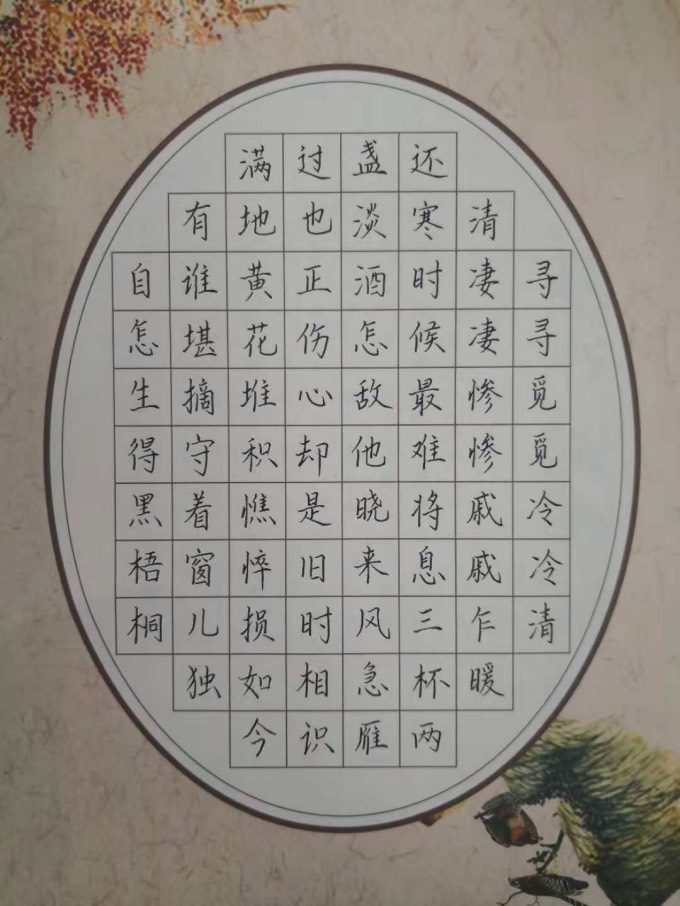 寻寻觅觅冷冷清
清凄凄惨惨戚戚乍暖
还寒时候最难将息三杯两
盏淡酒怎敌他晓来风急雁
过也正伤心却是旧时相识
满地黄花堆积憔悴损如今
有谁堪摘守着窗儿独
自怎生得黑梧桐